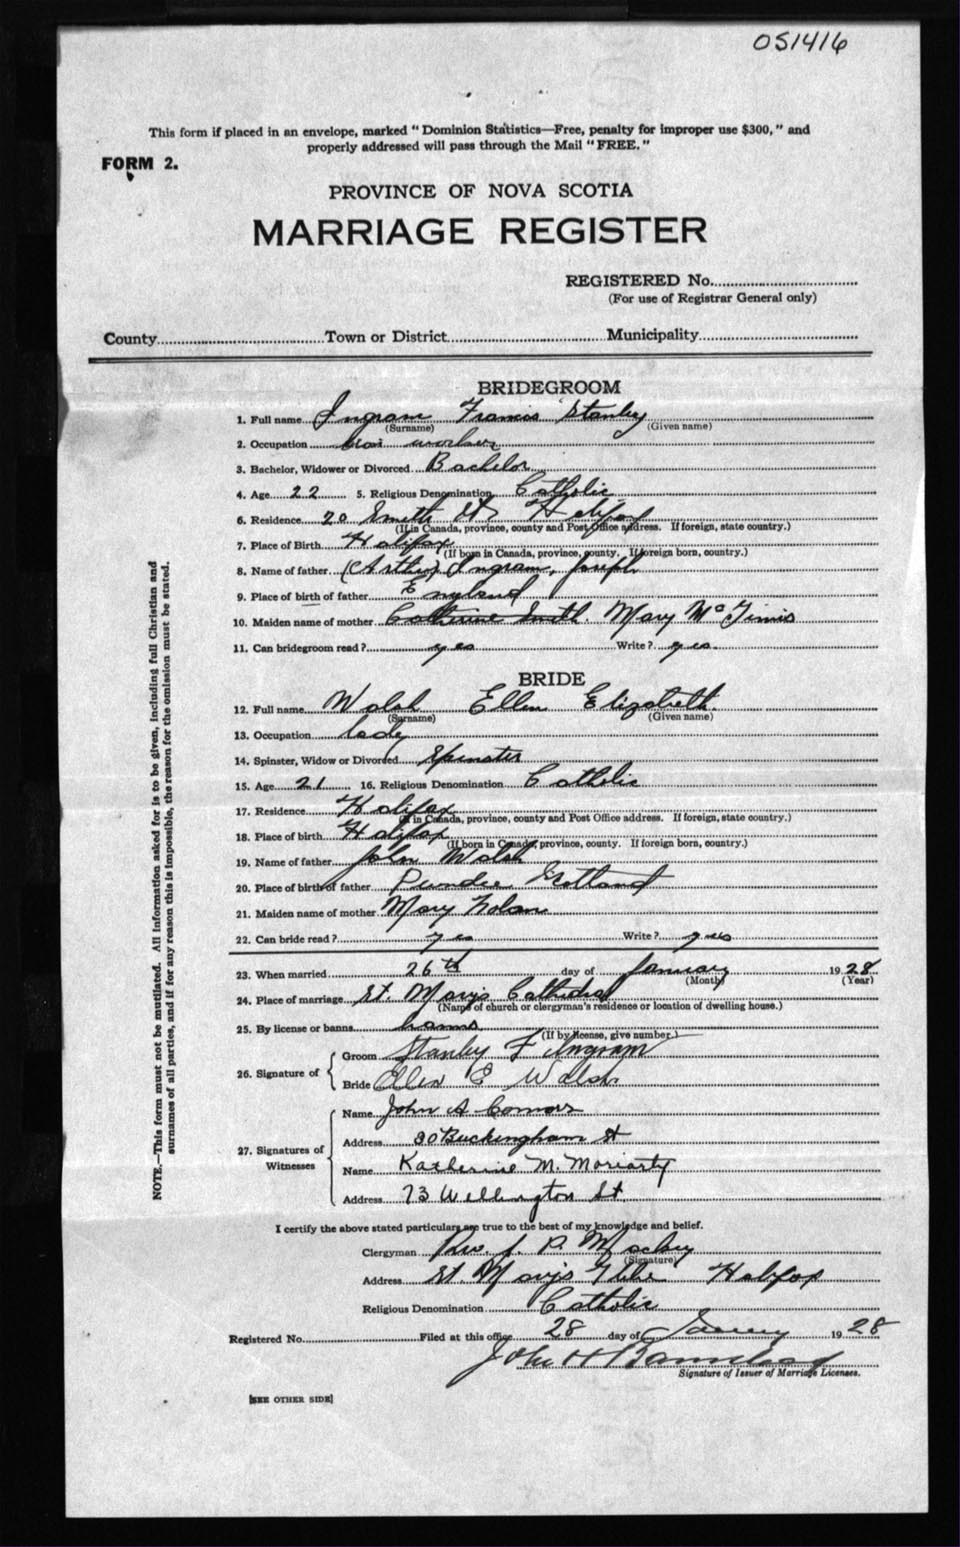 051416
This form if placed in an envelope, marked "Dominion Statistics—Free, penalty for improper use $300," and
properly addressed will pass through the Mail "FREE."
FORM 2.
PROVINCE OF NOVA SCOTIA
MARRIAGE REGISTER
REGISTERED No.
(For use of Registrar General only)
County Town or District Municipality
BRIDEGROOM
1. Full name Ingram Francis Stanley
(Surname) (Given name)
2. Occupation worker
3. Bachelor, Widower or Divorced Bachelor
4. Age 22 5. Religious Denomination Catholic
6. Residence 20 Smith St Halifax
(If in Canada, province, county and Post Office address. If foreign, state country.)
7. Place of Birth Halifax
(If born in Canada, province, county. If foreign born, country.)
8. Name of father (Arthur) Ingram, Joseph
9. Place of birth of father England
10. Maiden name of mother Catherine Smith. Mary McGinnis
11. Can bridegroom read? yes Write? yes.
BRIDE
12. Full name Walsh Ellen Elizabeth.
(Surname) (Given name)
13. Occupation lady
14. Spinster, Widow or Divorced Spinster
15. Age 21 16. Religious Denomination Catholic
17. Residence Halifax
(If in Canada, province, county and Post Office address. If foreign, state country.)
18. Place of birth Halifax
(If born in Canada, province, county. If foreign born, country.)
19. Name of father John Walsh
20. Place of birth of father Dundee Scotland
21. Maiden name of mother Mary Nolan
22. Can bride read? yes Write? yes
23. When married 26th day of January 1928
(Month) (Year)
24. Place of marriage St. Mary's Cathedral
(Name of church or clergyman's residence or location of dwelling house.)
25. By license or banns banns
(If by license, give number.)
26. Signature of
Groom Stanley F Ingram
Bride Ellen E Walsh
27. Signatures of Witnesses
Name John A Connors
Address 30 Buckingham St
Name Katherine M. Moriarty
Address 73 Wellington St
I certify the above stated particulars are true to the best of my knowledge and belief.
Clergyman Rev. J. P. Mackey
(Signature)
Address St. Mary's Glebe Halifax
Religious Denomination Catholic
Registered No. Filed at this office 28 day of January 1928
John H Barnstead
Signature of Issuer of Marriage Licenses.
[SEE OTHER SIDE]
NOTE.—This form must not be mutilated. All information asked for is to be given, including full Christian and
surnames of all parties, and if for any reason this is impossible, the reason for the omission must be stated.